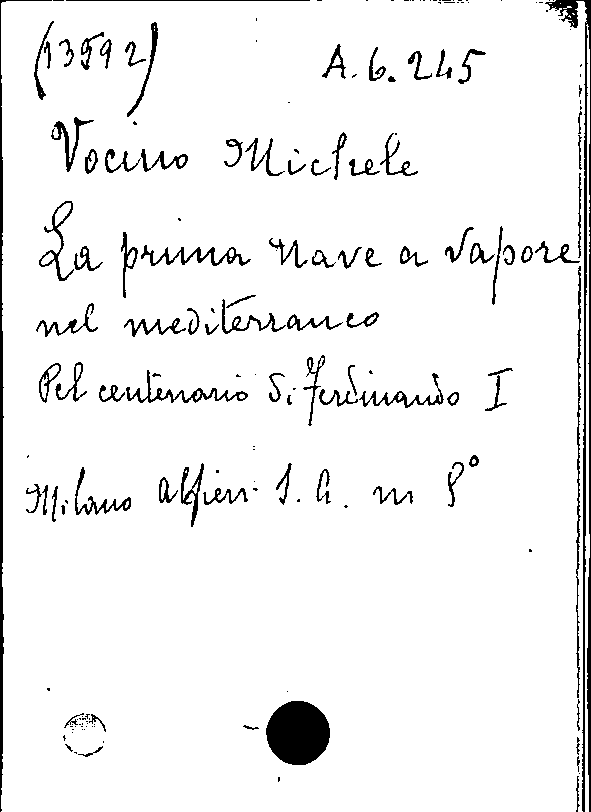 (13592) A. 6. 245
Vocino Michele
La prima nave a vapore
nel mediterraneo
Pel centenario di Ferdinando I
Milano Alfieri S. A. in 8°